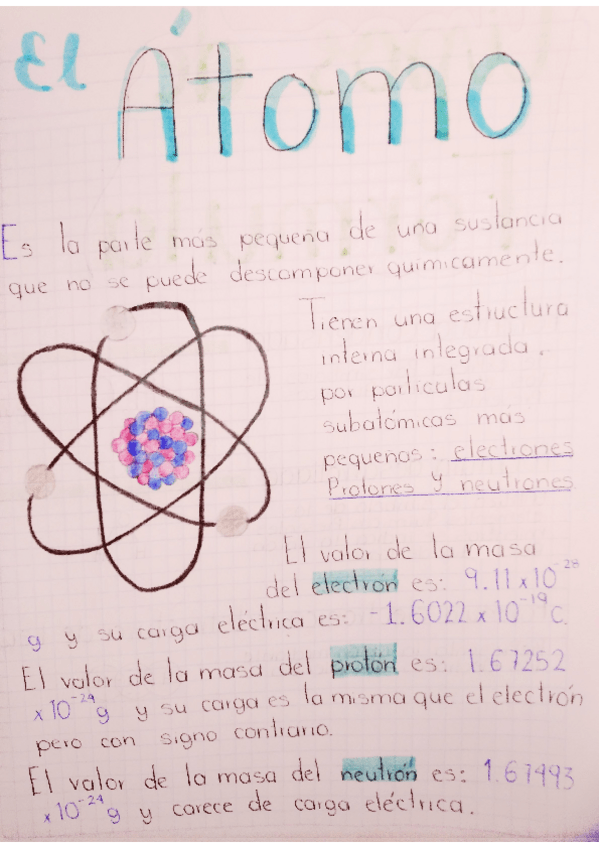 El Átomo
Es la parte más pequeña de una sustancia
que no se puede descomponer químicamente.
Tienen una estructura
interna integrada,
por partículas
subatómicas más
pequeñas: electrones
Protones y neutrones
El valor de la masa
del electrón es: 9.11 x 10⁻²⁸
g y su carga eléctrica es: -1.6022 x 10⁻¹⁹ C.
El valor de la masa del protón es: 1.67252
x 10⁻²⁴ g y su carga es la misma que el electrón
pero con signo contrario.
El valor de la masa del neutrón es: 1.67493
x 10⁻²⁴ g y carece de carga eléctrica.